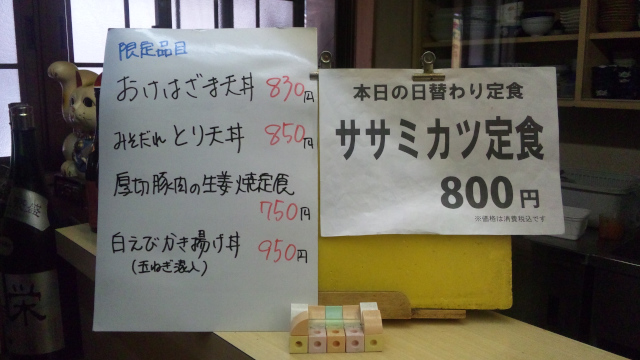 限定品目
おけはざま天丼 830円
みそだれとり天丼 850円
厚切豚肉の生姜焼定食
750円
白えびかき揚げ丼 950円
(玉ねぎ混入)
本日の日替わり定食
ササミカツ定食
800円
※価格は消費税込です
栄